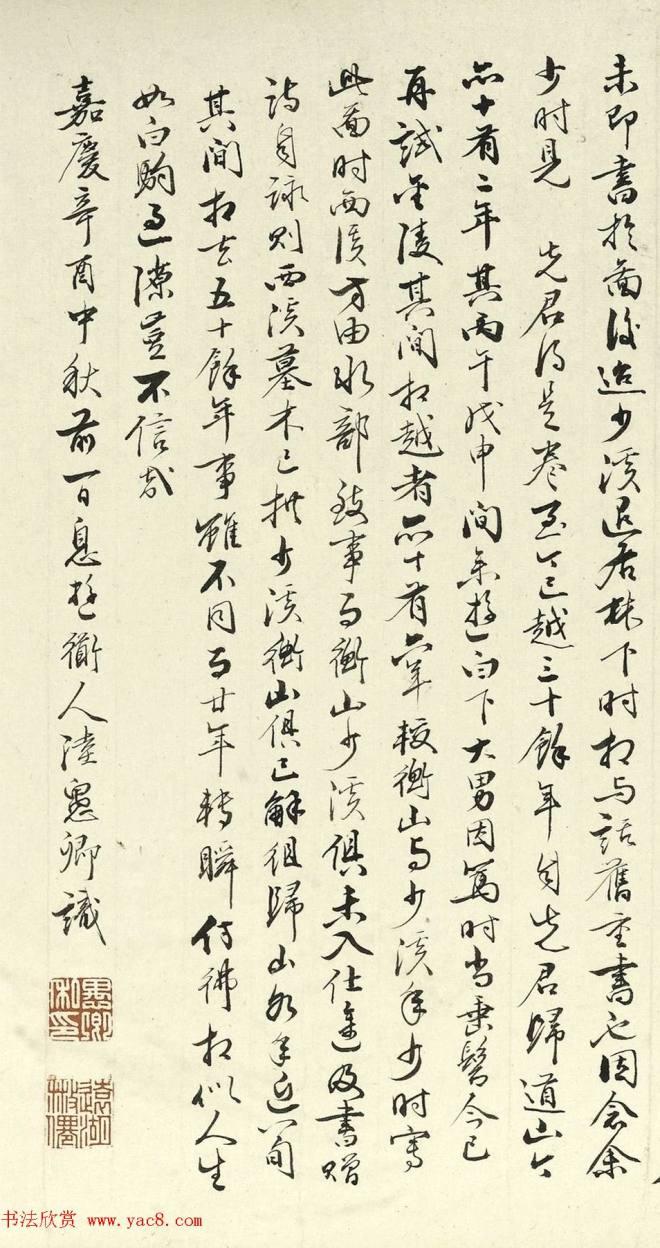 未即書於圖後迨少溪退居林下時相与話舊重書之因念余
少時見 先君得是卷至今已越三十餘年自先君歸道山今
亦十有二年其丙午戊申間余遊白下大男因篤時尚垂髫今已
再試金陵其間相越者亦十有六年較衡山与少溪年少時寫
此圖時西溪方由水部致事而衡山少溪俱未入仕途及書贈
詩自詠則西溪墓木已拱少溪衡山俱已解組歸山如年近八旬
其間相去五十餘年事雖不同而廿年轉瞬仿彿相似人生
如白駒過隙豈不信哉
嘉慶辛酉中秋前一日息遊衜人陸愚卿識
愚卿私印
遠湖
书法欣赏 www.yac8.com